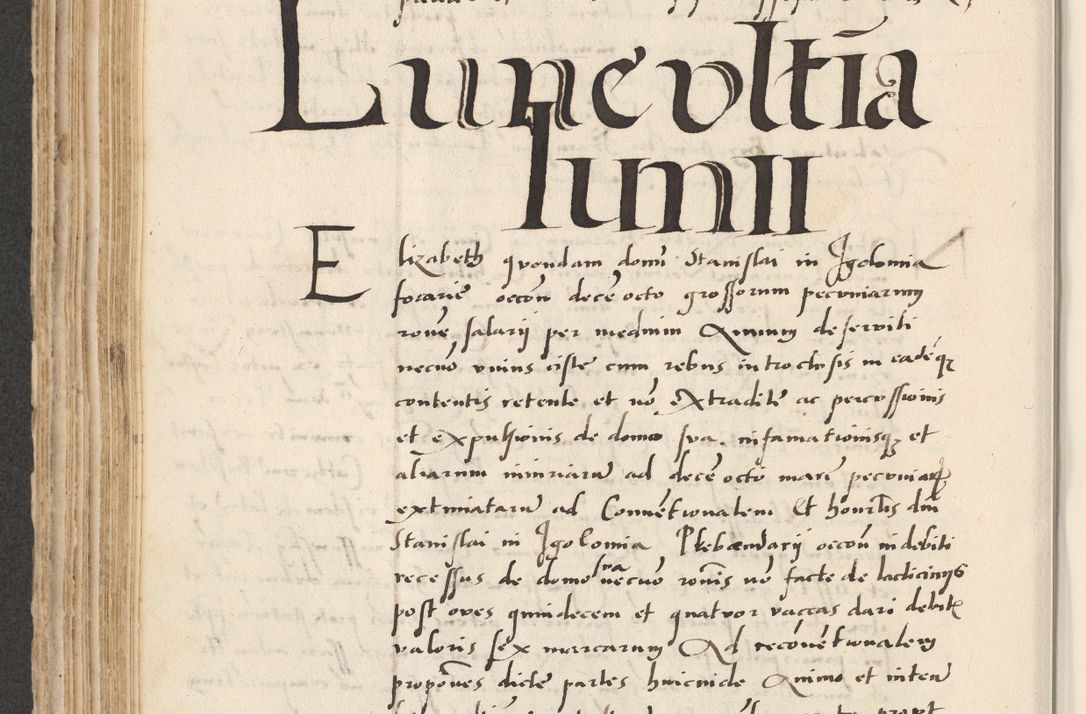 Lune vltīa
Iunii
Elizabeth quondam domī Stanislai in Igolomia
focarie occoū decē octo grossorum pecuniarum
roūe salarii per medium Annum deserviti
necuō unius ciste cum rebus introclusis in eadēqz
contentis retente et nō extradite ac percussionis
et expulsionis de domo sua. infamationisqz et
aliarum iniuriarū ad decē octo marc pecuniarz
extimiatarū ad Conuētionalem Et honrlis dni
Stanislai in Igolomia Plebandarii occoū indebiti
recessus de domo sua necuō ronis nō facte de lacticiniis
post oves quindecem et quatuor vaccas dari debite
valoris sex marcarum Ad recōuētionalem
propoēs dicte partes huicmide Animo et inten